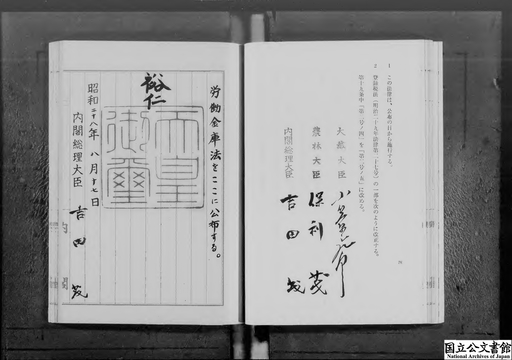 1 この法律は、公布の日から施行する。
2 登録税法(明治二十九年法律第二十七号)の一部を次のように改正する。
第十九条中「を「に改める。
大蔵大臣 小笠原三九郎
農林大臣 保利茂
内閣総理大臣 吉田茂
労働金庫法をここに公布する。
裕仁
天皇御璽
昭和二十八年八月十七日
内閣総理大臣 吉田茂
国立公文書館
National Archives of Japan